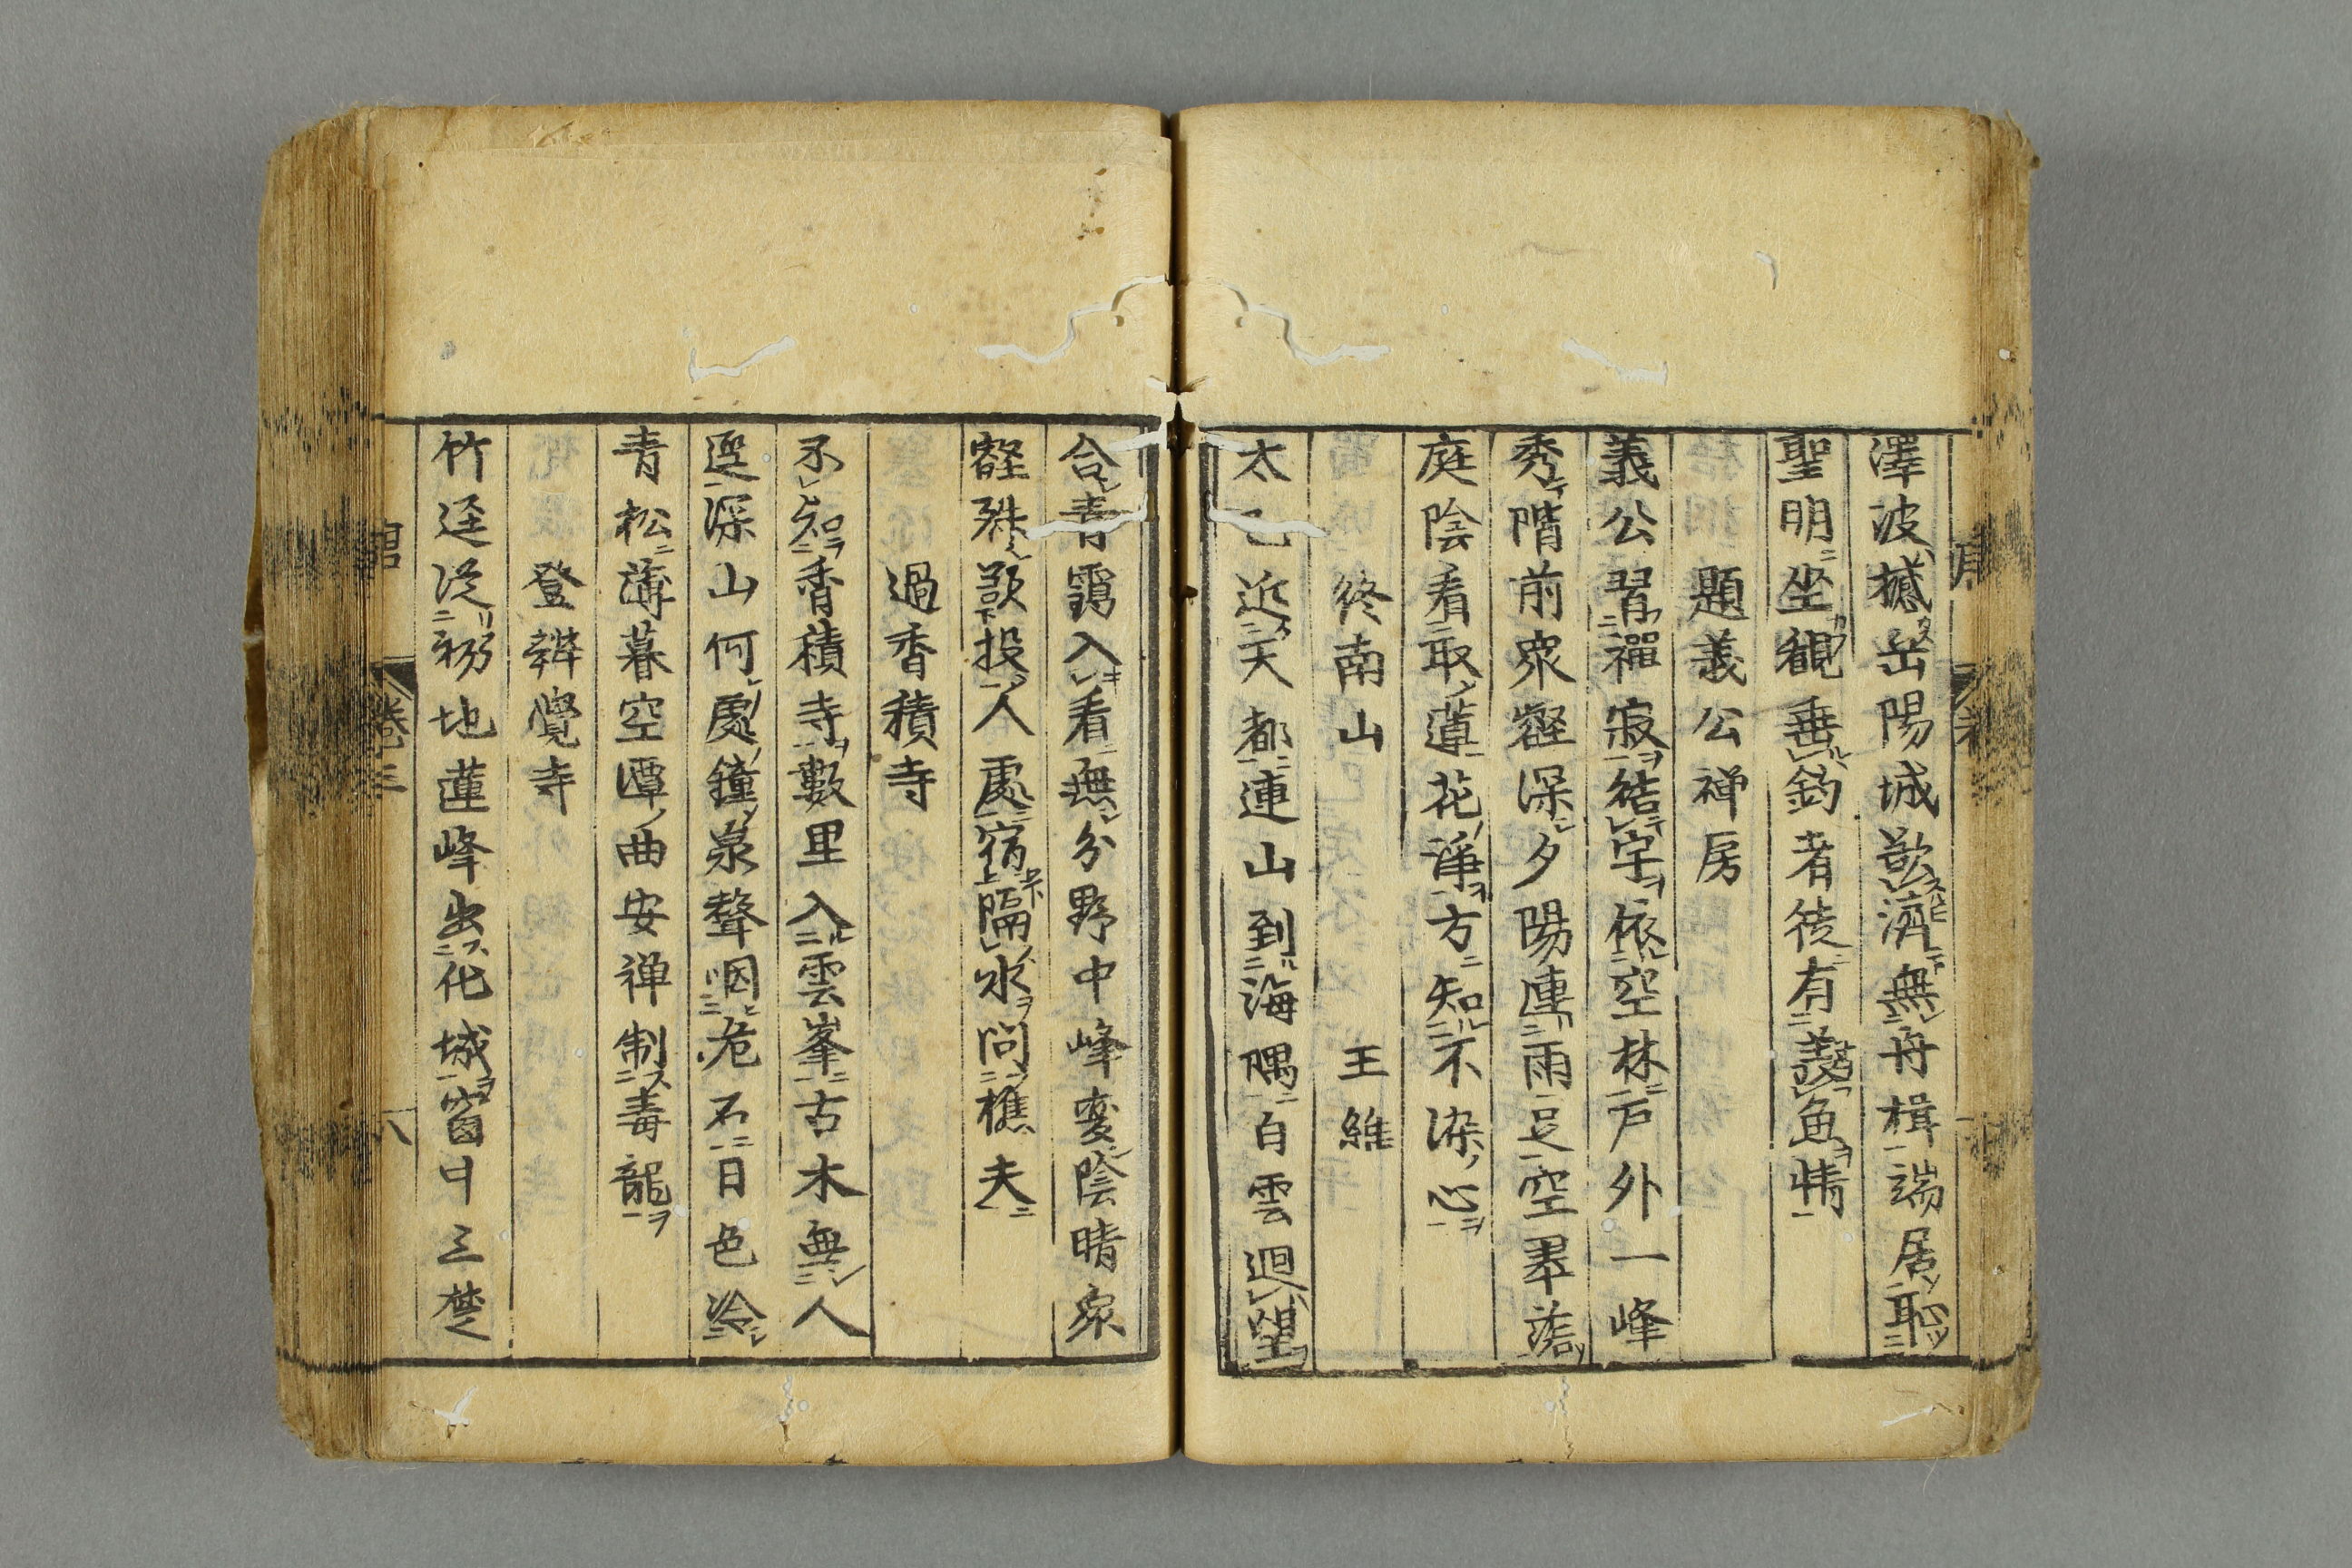 澤波撼岳陽城欲濟無舟楫端居恥
聖明坐觀垂釣者徒有羨魚情
題義公禅房
義公習禪寂結宇依空林戸外一峰
秀階前衆壑深夕陽連雨足空翠落
庭陰看取蓮花淨方知不染心
終南山 王維
太乙近天都連山到海隅白雲迴望
合青靄入看無分野中峰変陰晴衆
壑殊欲投人處宿隔水問樵夫
過香積寺
不知香積寺數里入雲峯古木無人
逕深山何處鐘泉聲咽危石日色冷
青松薄暮空潭曲安禅制毒龍
登辨覺寺
竹逕従初地蓮峰出化城窗中三楚
卷三
八